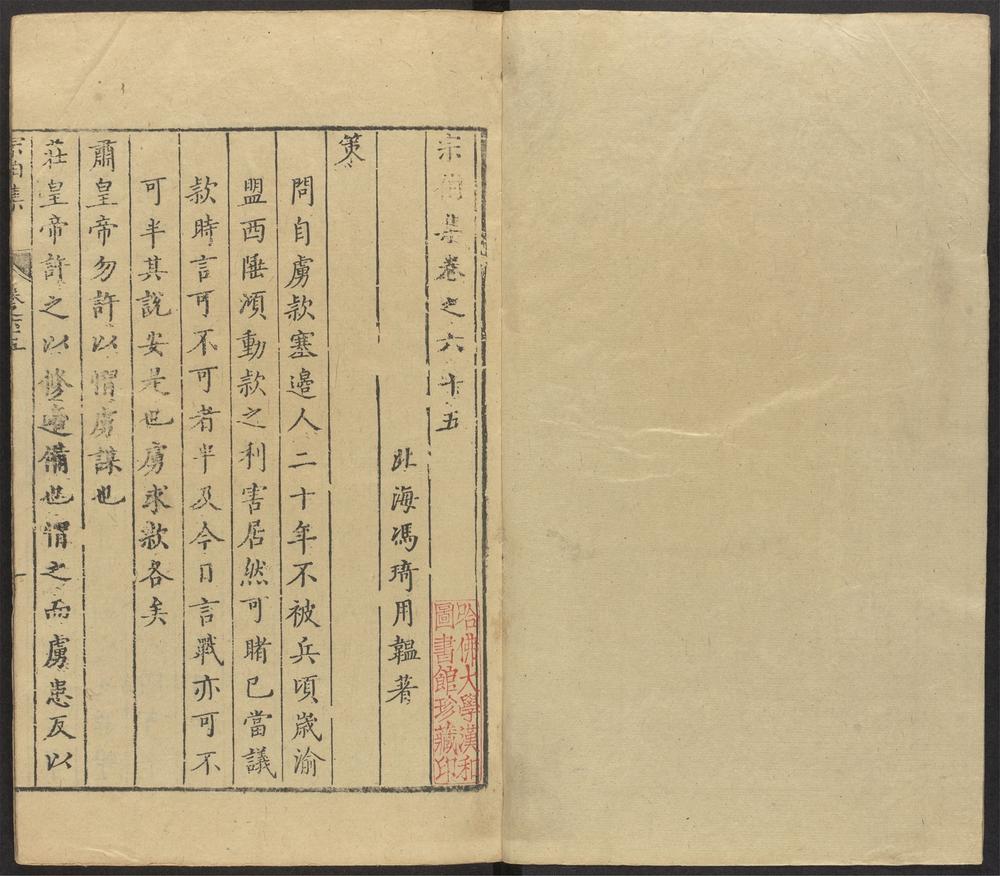 宗伯集卷之六十五
北海馮琦用韞著
策
問自虜款塞邊人二十年不被兵頃歲渝
盟西陲頗動款之利害居然可睹已當議
款時言可不可者半及今日言戰亦可不
可半其說安是也虜求款各矣
肅皇帝勿許以懼虜謀也
莊皇帝許之以修邊備也懼之而虜患反以
宗伯集
卷之六十五
一
哈佛大學漢和
圖書館珍藏印